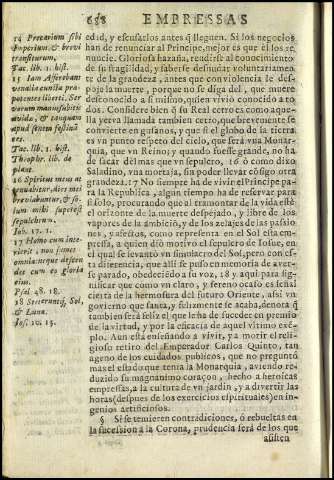 658 EMPRESSAS
14 Precarium sibi
Imperium, & brevi
transiturum.
Tac. lib. 1. hist.
15 Iam Afferebant
venalia cuncta præ-
potentes liberti. Ser
vorum manus subitis
avida, & tanquam
apud senem festinã
tes.
Tac. lib. 1. hist.
Theophr. lib. de
plant.
16 Spiritus meus at
tenuabitur, dies mei
breviabuntur, & so-
lum mihi superest
sepulchrum.
Iob. 17. 1.
17 Homo cum inte-
rierit, non sumet
omnia: neque descen
det cum eo gloria
eius.
Psal. 48. 18.
18 Steteruntq́; Sol,
& Luna.
Ios. 10. 13.
edid, y escusarlos antes q̃ lleguen. Si los negocios
han de renunciar al Principe, mejor es que èl los re-
nuncie. Gloriosa hazaña, rendirse al conocimiento
de su fragilidad, y saberse desnudar voluntariamen-
te de la grandeza, antes que con violencia le des-
poje la muerte, porque no se diga del, que muere
desconocido a si mismo, quien vivió conocido a to-
dos. Considere bien q̃ su Real cetro es como aque-
lla yerva llamada tambien cetro, que brevemente se
convierte en gusanos, y que si el globo de la tierra
es vn punto respeto del cielo, que serà vna Monar-
quia, que vn Reino; y quando fuesse grande, no ha
de sacar dèl mas que vn sepulcro, 16 ó como dixo
Saladino, vna mortaja, sin poder llevar cõsigo otra
grandeza. 17 No siempre ha de vivir el Principe pa-
ra la Republica, algun tiempo ha de reservar para
si solo, procurando que al tramontar de la vida estè
el orizonte de la muerte despejado, y libre de los
vapores de la ambiciõ, y de los zelajes de las passio
nes, y afectos, como representa en el Sol esta em-
pressa, a quien dió motivo el sepulcro de Iosue, en
el qual se levantò vn simulacro del Sol, pero con es-
ta diferencia, que allí se puso en memoria de aver-
se parado, obedeciédo a su voz, 18 y aqui para sig-
nificar que como vn claro, y sereno ocaso es señal
cierta de la hermosura del futuro Oriente, asi vn
govierno que santa, y felizmente se acaba, denota q̃
tambien serà feliz el que le ha de suceder en premio
de la virtud, y por la eficacia de aquel vltimo exem-
plo. Aun està enseñando a vivir, ya morir el reli-
gioso retiro del Emperador Carlos Quinto, tan
ageno de los cuidados publicos, que no preguntó
mas el estado que tenia la Monarquia, aviendo re-
duzido su magnanimo coraçon, hecho a heroicas
empressas, a la cultura de vn jardin, y a divertir las
horas (despues de los exercicios espirituales) en in-
genios artificiosos.
§ Si se temieren contradiciones, ó rebueltas en
la sucession a la Corona, prudencia serà de los que
asisten